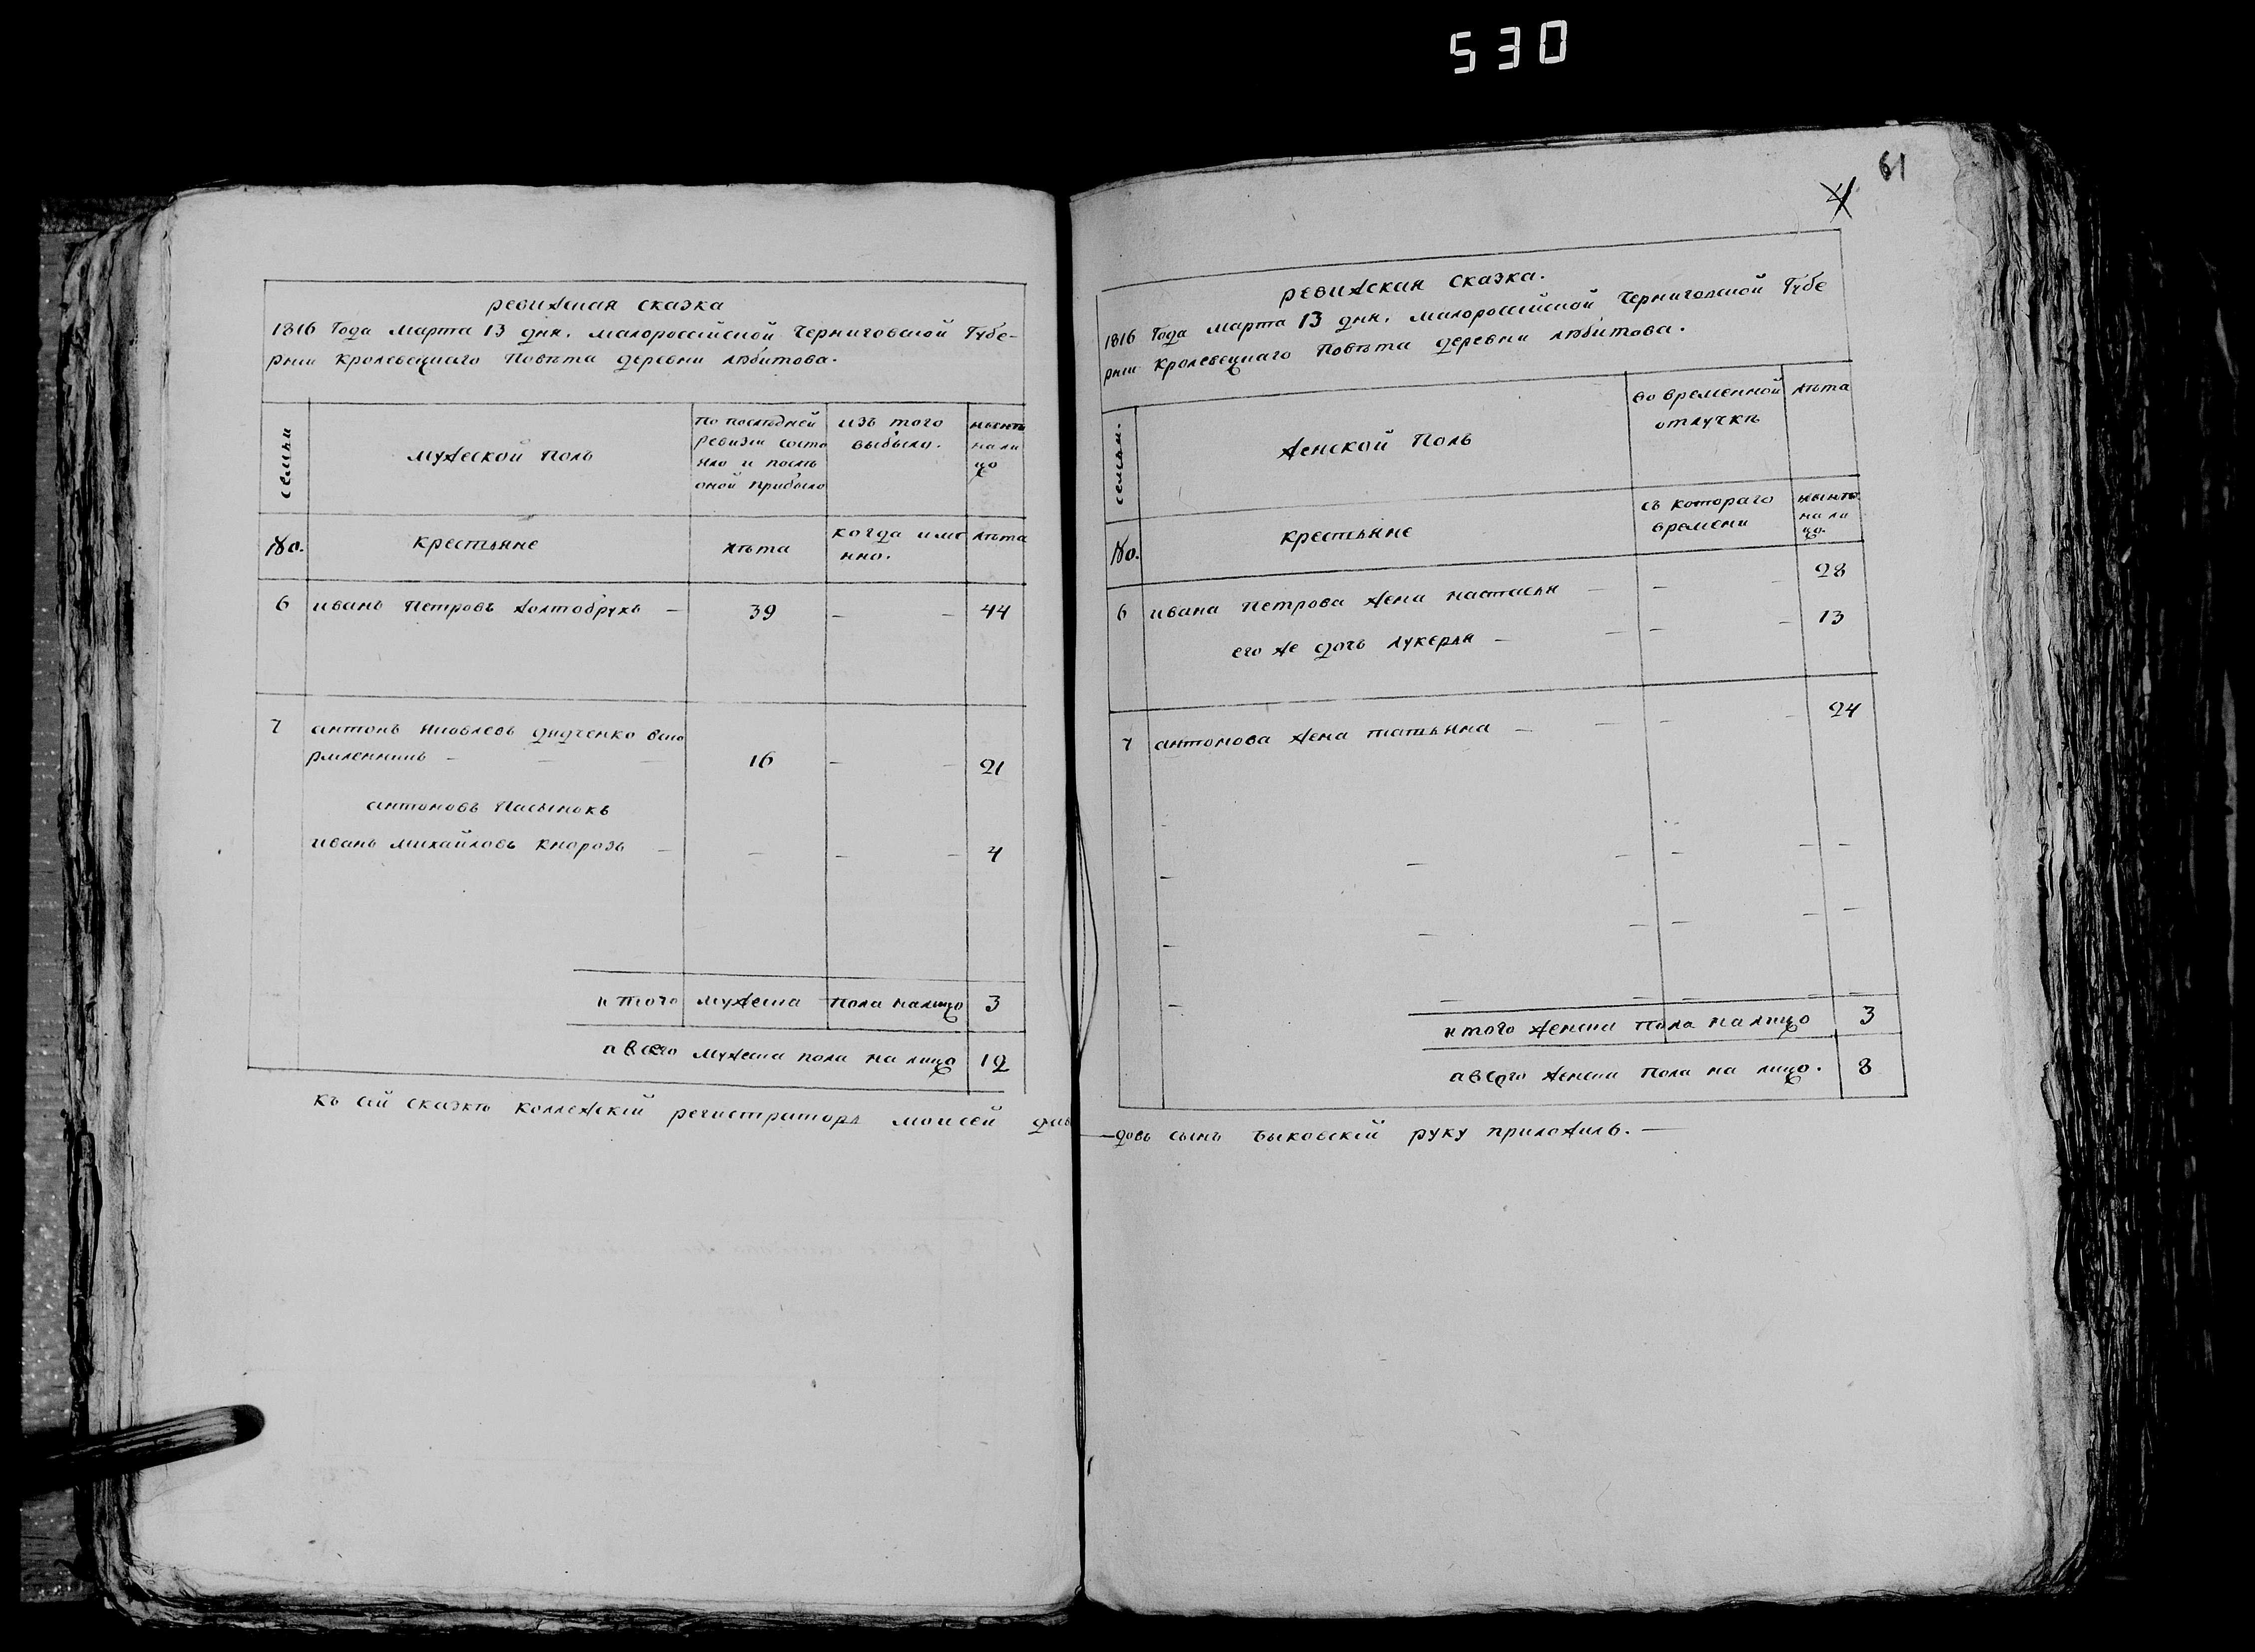 530
61
4
ревижская сказка
1816 Года марта 13 дня. малороссійской Черниговской Губе-
рніи Кролевецкаго Повѣта деревни любитова.
семьи
мужеской Полъ
По послѣдней
ревизіи состо
яло и послѣ
оной прибыло
изъ того
выбыло.
нынѣ
на ли
цо
No.
крестьяне
лѣта
когда имѣ
нно.
лѣта
6 иванъ Петровъ Жолтобрухъ — 39 — — 44
7 антонъ Яковлевъ дядченко вско
рмленникъ — — — 16 — — 21
антоновъ Пасынокъ
иванъ михайловъ Кнорозъ — — — — 4
итого мужеска Пола налицо 3
а всего мужеска пола на лицо 12
Къ сей сказкѣ Коллежскій регистраторъ моисей дав
ревижская Сказка.
1816 Года марта 13 дня. малороссійской Черниговской Губе
рніи Кролевецкаго Повѣта деревни любитова.
семьи.
женской Полъ
во временной
отлучкѣ
лѣта
No.
крестьяне
съ котораго
времени
нынѣ
на ли
цо.
6 ивана Петрова жена настасья — — — 28
его же дочь лукерья — — — — 13
7 антонова жена татьяна — — — — 24
итого женска Пола на лицо 3
а всего женска Пола на лицо. 8
—довъ сынъ Быковскій руку приложилъ. —